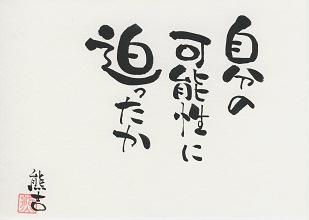 自分の
可能性に
迫ったか
熊吉